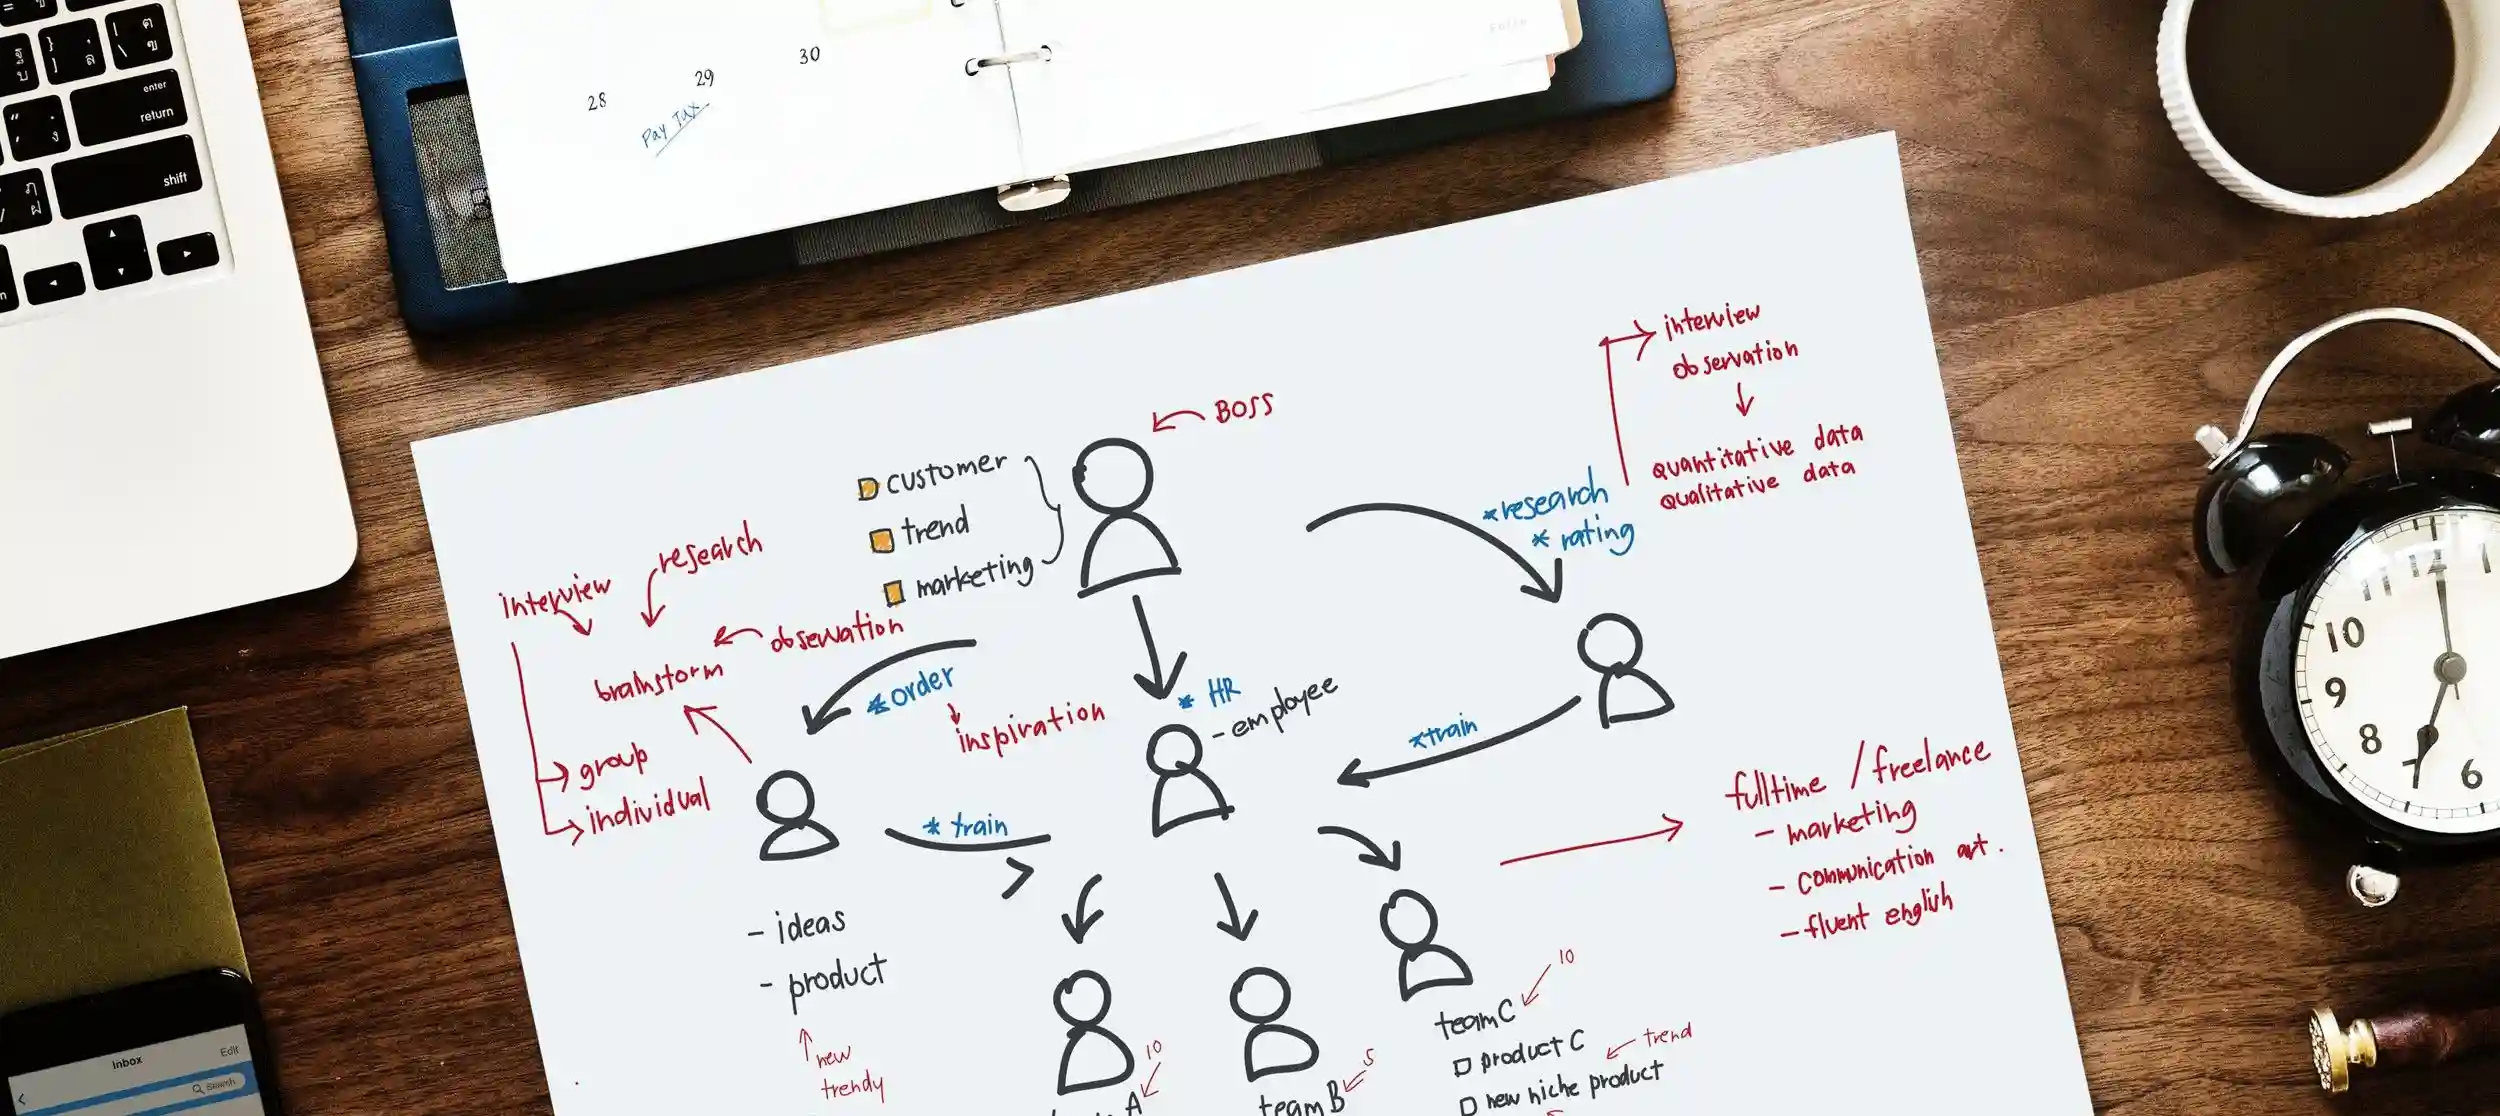 enter
return
shift
28
29
30
Pay Tax
BOSS
customer
trend
marketing
interview
observation
quantitative data
qualitative data
*research
* rating
research
interview
observation
brainstorm
*order
inspiration
* HR
- employee
*train
group
individual
* train
fulltime / freelance
- marketing
- communication art.
- fluent english
- ideas
- product
new
trendy
10
team C
product C
trend
new niche product
10
A
5
team B
10
9
8
7
6
Inbox
Edit
Search